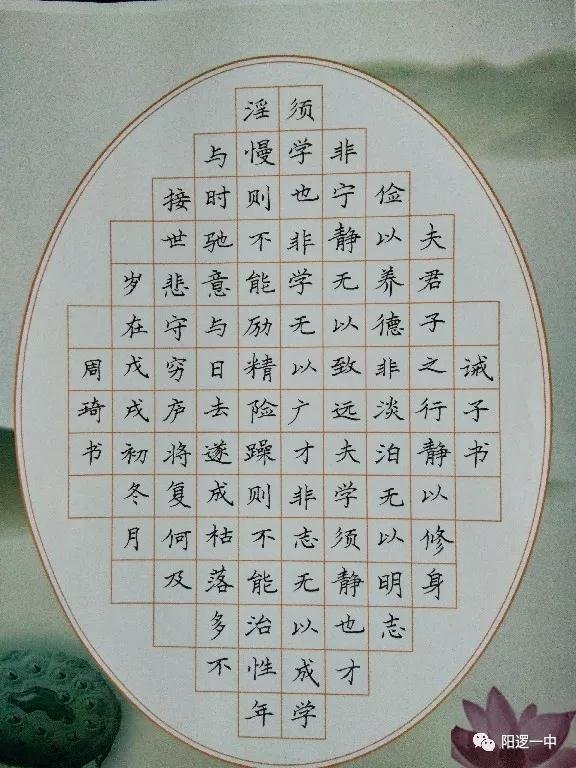 诫子书
夫君子之行静以修身
俭以养德非淡泊无以明志
非宁静无以致远夫学须静也才
须学也非学无以广才非志无以成学
淫慢则不能励精险躁则不能治性年
与时驰意与日去遂成枯落多不
接世悲守穷庐将复何及
岁在戊戌初冬月
周琦书
阳逻一中